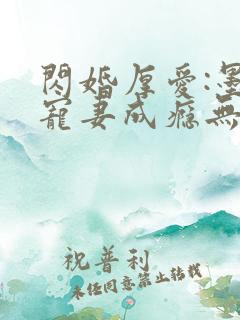 閃婚厚愛:墨
寵妻成癮無
祝普利
未任同意禁止转载